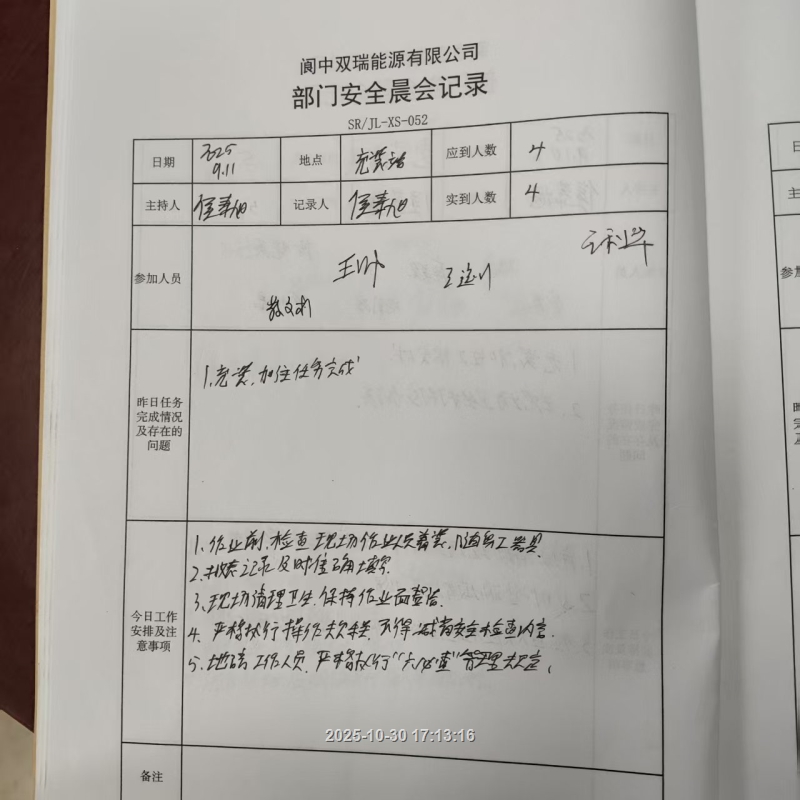 阆中双瑞能源有限公司
部门安全晨会记录
SR/JL-XS-052
日期 2025 9.11 地点 充装站 应到人数 4
主持人 记录人 实到人数 4
参加人员
昨日任务完成情况及存在的问题
1、充装、加注任务完成
今日工作安排及注意事项
1、作业前、检查现场作业人员着装、随身工器具
2、记录及时准确填写
3、现场清理卫生、保持作业面整洁
4、严格执行操作 不得 安全检查内容
5、地磅工作人员、严格执行“六必查”管理规定、
备注
2025-10-30 17:13:16